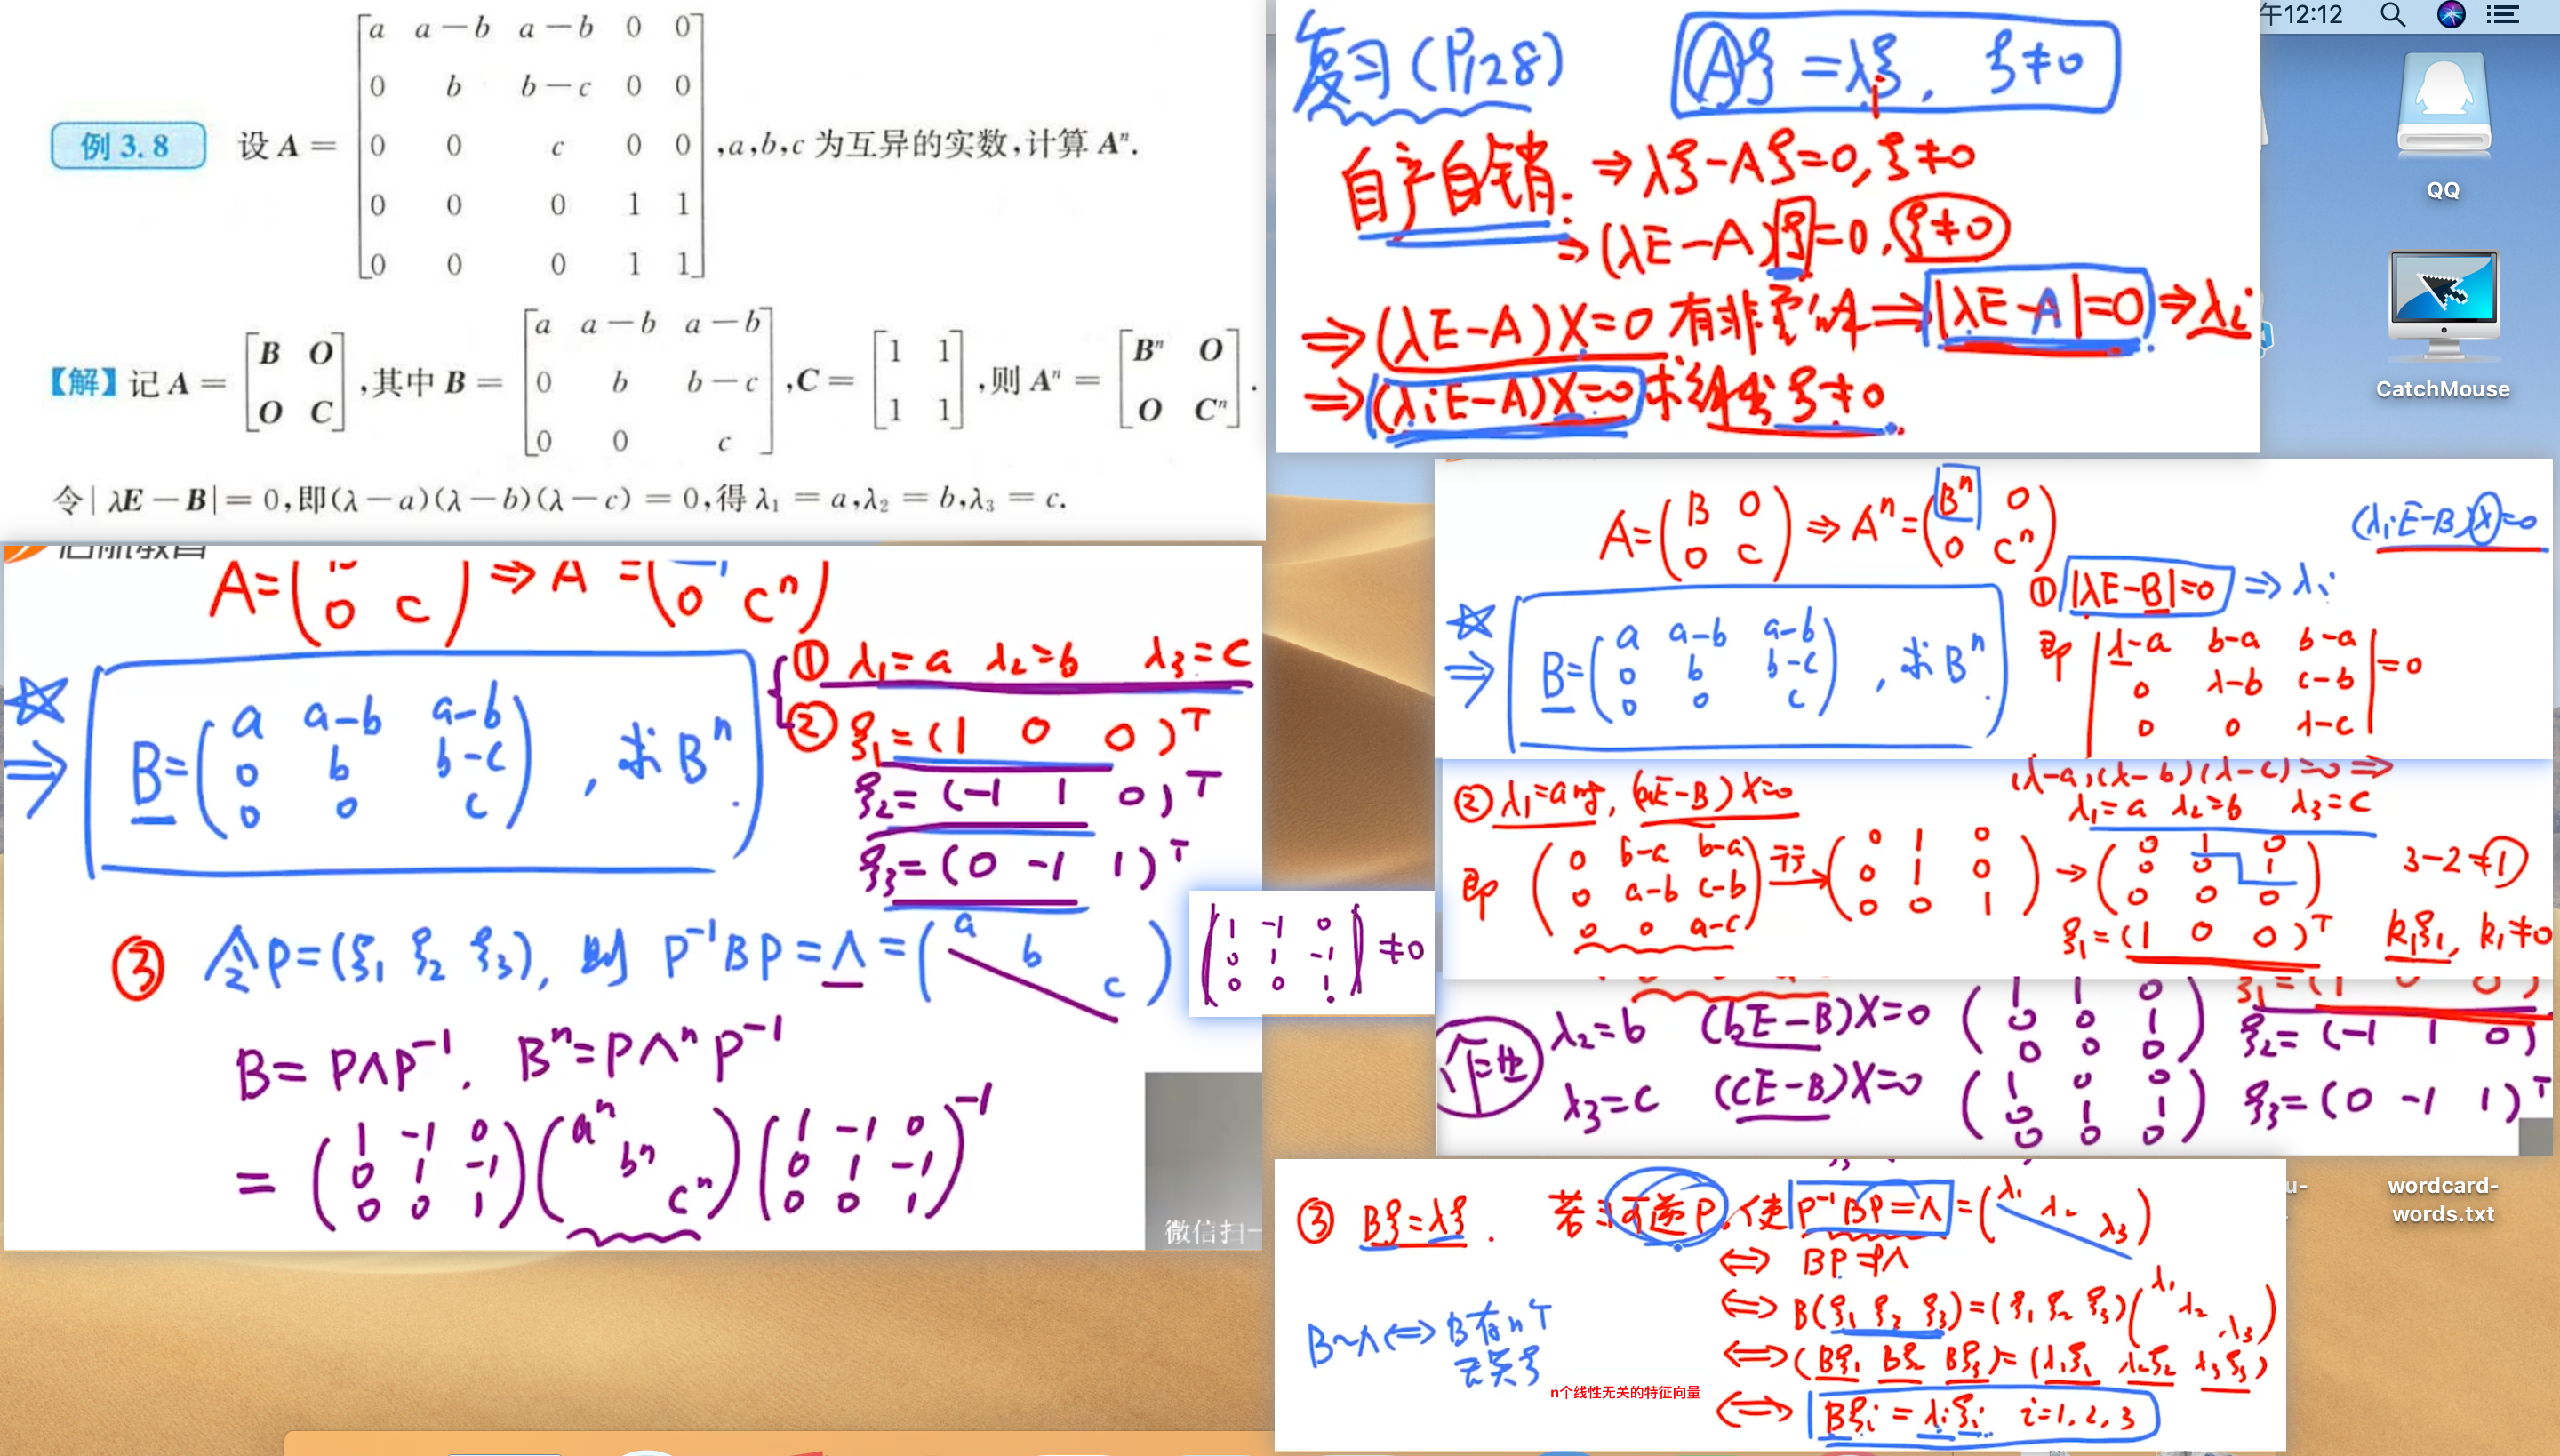 例 3.8 设 A = [a a-b a-b 0 0
0 b b-c 0 0
0 0 c 0 0
0 0 0 1 1
0 0 0 1 1], a,b,c 为互异的实数,计算 Aⁿ.
【解】记 A = [B O
O C],其中 B = [a a-b a-b
0 b b-c
0 0 c], C = [1 1
1 1],则 Aⁿ = [Bⁿ O
O Cⁿ].
令|λE-B|=0,即(λ-a)(λ-b)(λ-c)=0,得 λ₁=a,λ₂=b,λ₃=c.
复习(P128) Aξ=λξ, ξ≠0
自产自销: ⇒λξ-Aξ=0, ξ≠0
⇒(λE-A)ξ=0, ξ≠0
⇒(λE-A)X=0 有非零解⇒|λE-A|=0⇒λi
⇒(λiE-A)X=0 ξ≠0
午12:12
QQ
CatchMouse
A=(B 0
0 C)⇒Aⁿ=(Bⁿ 0
0 Cⁿ)
(λiE-B)X=0
①|λE-B|=0⇒λi
☆⇒ B=(a a-b a-b
0 b b-c
0 0 c), 求Bⁿ.
即 |λ-a b-a b-a
0 λ-b c-b
0 0 λ-c|=0
(λ-a)(λ-b)(λ-c)=0⇒
λ₁=a λ₂=b λ₃=c
②λ₁=a时, (aE-B)X=0
即(0 b-a b-a
0 a-b c-b
0 0 a-c) 行→(0 1 0
0 1 0
0 0 1)→(0 1 0
0 0 1
0 0 0) 3-2=1
ξ₁=(1 0 0)ᵀ k₁ξ₁, k₁≠0
λ₂=b (bE-B)X=0 (1 1 0
0 0 1
0 0 0) ξ₂=(-1 1 0)
λ₃=c (cE-B)X=0 (1 0 0
0 1 1
0 0 0) ξ₃=(0 -1 1)ᵀ
启航教育
A=(
0 C)⇒A =(
0 Cⁿ)
☆⇒ B=(a a-b a-b
0 b b-c
0 0 c), 求Bⁿ.
①λ₁=a λ₂=b λ₃=c
②ξ₁=(1 0 0)ᵀ
ξ₂=(-1 1 0)ᵀ
ξ₃=(0 -1 1)ᵀ
③令P=(ξ₁ ξ₂ ξ₃), 则 P⁻¹BP=Λ=(a
b
c)
|1 -1 0
0 1 -1
0 0 1|≠0
B=PΛP⁻¹. Bⁿ=PΛⁿP⁻¹
=(1 -1 0
0 1 -1
0 0 1)(aⁿ
bⁿ
cⁿ)(1 -1 0
0 1 -1
0 0 1)⁻¹
微信扫一
③ Bξ=λξ. 若∃可逆P, 使P⁻¹BP=Λ=(λ₁
λ₂
λ₃)
⇔ BP=PΛ
⇔ B(ξ₁ ξ₂ ξ₃)=(ξ₁ ξ₂ ξ₃)(λ₁
λ₂
λ₃)
B~Λ⇔B有n个
无关ξ
n个线性无关的特征向量
⇔(Bξ₁ Bξ₂ Bξ₃)=(λ₁ξ₁ λ₂ξ₂ λ₃ξ₃)
⇔ Bξi=λiξi i=1,2,3
u-
wordcard-
words.txt